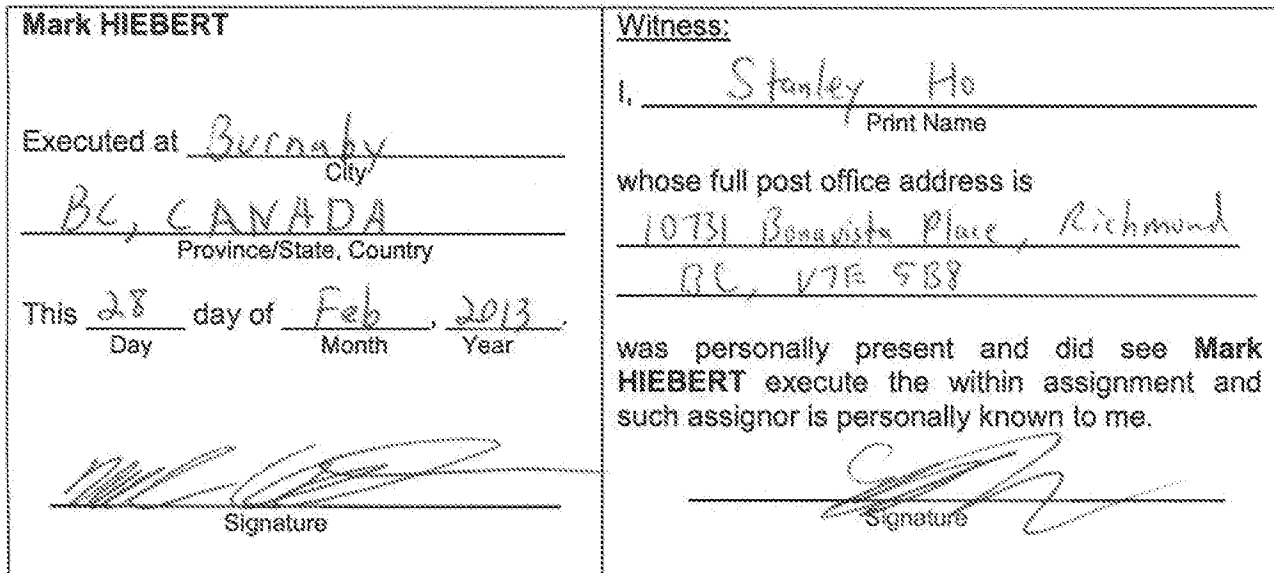 Mark HIEBERT
Executed at Burnaby
City
BC, CANADA
Province/State, Country
This 28 day of Feb, 2013.
Day Month Year
Signature
Witness:
I, Stanley Ho
Print Name
whose full post office address is
10731 Bonavista Place, Richmond
BC, V7E 5B8
was personally present and did see Mark
HIEBERT execute the within assignment and
such assignor is personally known to me.
Signature